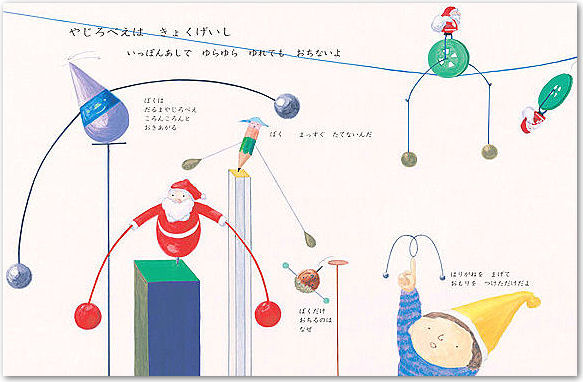 やじろべえは　きょくげいし
いっぽんあしで　ゆらゆら　ゆれても　おちないよ
ぼくは
だるまやじろべえ
ころんころんと
おきあがる
ぼく　まっすぐ　たてないんだ
はりがねを　まげて
おもりを　つけただけだよ
ぼくだけ
おちるのは
なぜ